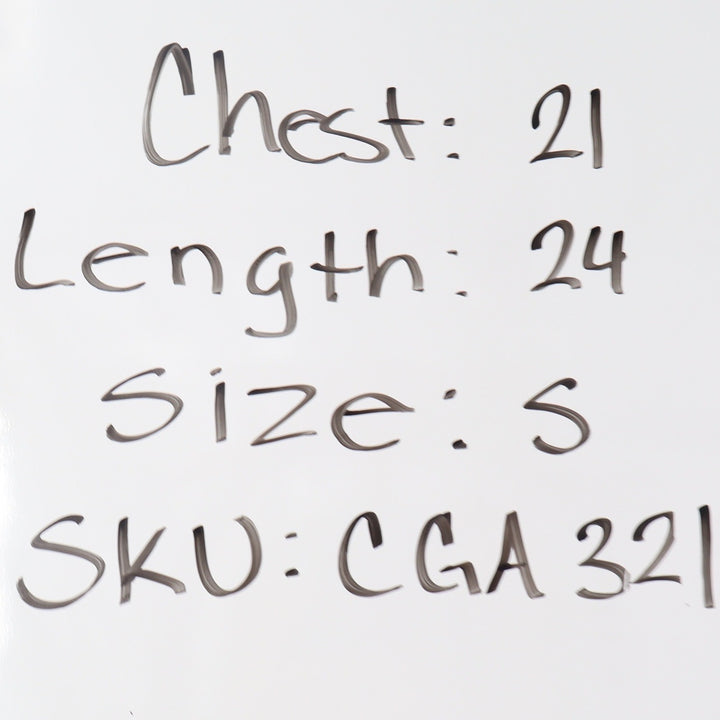 Chest: 21
Length: 24
Size: S
SKU: CGA 321